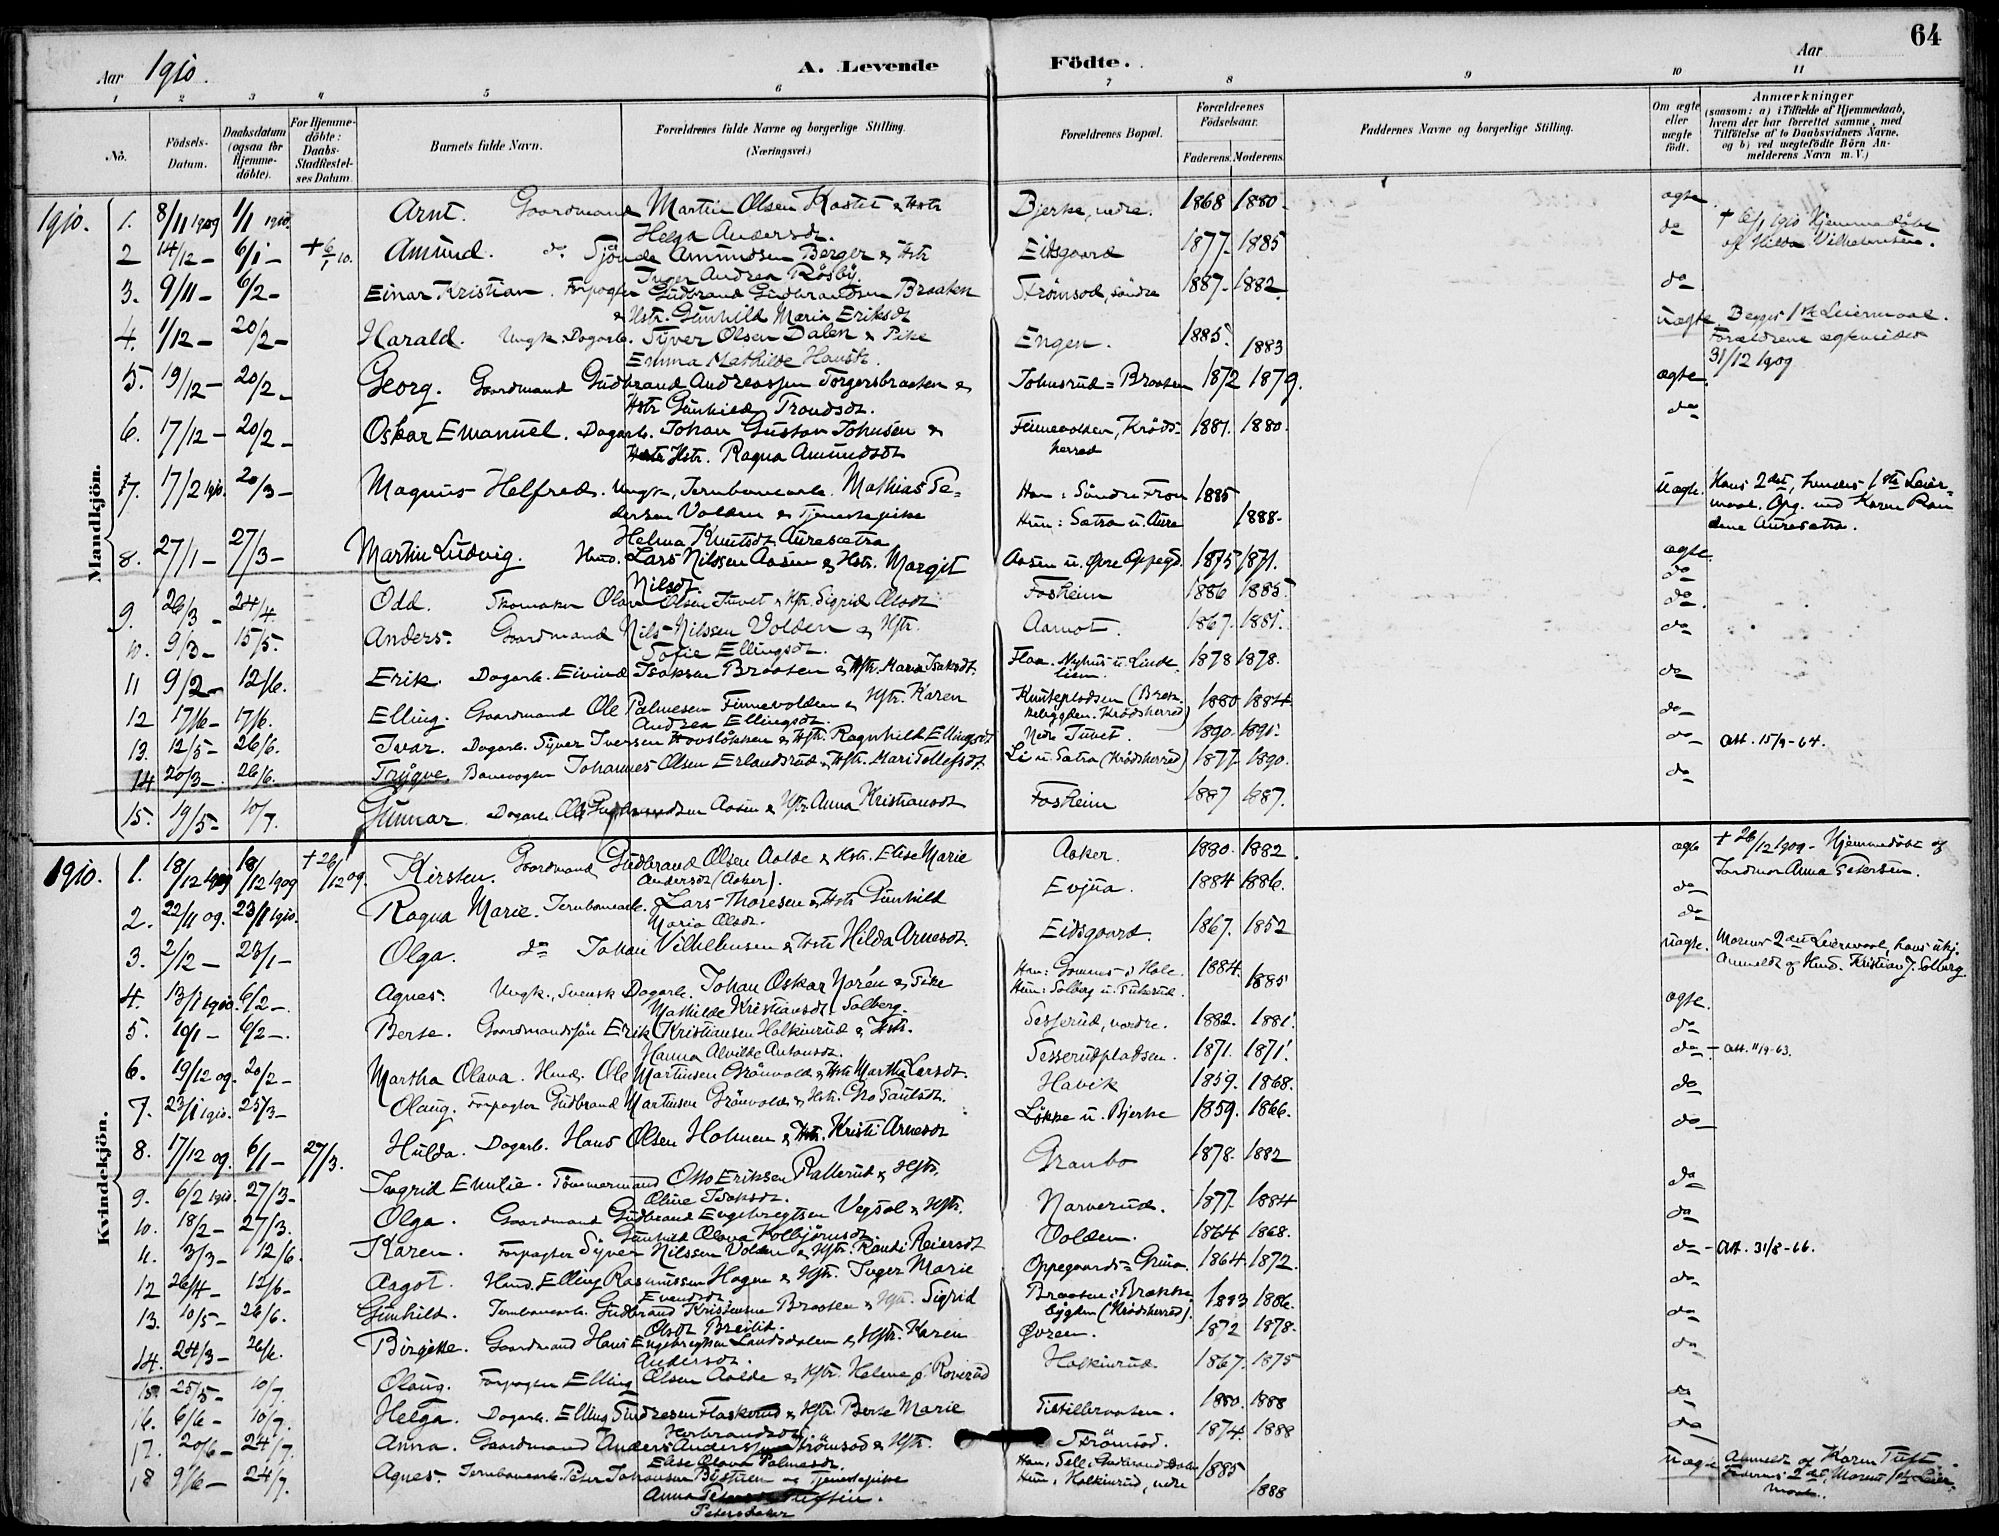 64
Aar 1910.
A. Levende Födte.
Aar
1 2 3 4 5 6 7 8 9 10 11
No.
Födsels-Datum.
Daabsdatum (ogsaa for Hjemme-döbte).
For Hjemme-döbte: Daabs-Stadfæstel-ses Datum.
Barnets fulde Navn.
Forældrenes fulde Navne og borgerlige Stilling. (Næringsvei.)
Forældrenes Bopæl.
Forældrenes Födselsaar.
Faderens. Moderens.
Faddernes Navne og borgerlige Stilling.
Om ægte eller uægte födt.
Anmærkninger (saasom: a) i Tilfælde af Hjemmedaab, hvem der har forrettet samme, med Tilföielse af to Daabsvidners Navne, og b) ved uægtefödte Börn An-melderens Navn m. V.)
Mandkjön.
1910. 1. 8/11 1909 1/1 1910. Arnt. Gaardmand Martin Olsen Kastet & Hstr Bjerke, nedre. 1868 1880. ægte.
Helga Andersdt.
2 14/12 – 6/1 – + 6/1 10. Amund. do Sjönde Amundsen Berger & Hstr Eidsgaard 1877. 1885 do + 6/1 1910 Hjemmedöbt
Inger Andrea Røsby. af Hilda Vilhelmsen.
3. 9/11 – 6/2 – Einar Kristian. Forpagter Gudbrand Gudbrandsen Braaten Strömsod, söndre 1887. 1882. do
& Hstr. Gunhild Maria Eriksdt
4. 1/12 – 20/2 – Harald. Ungk. Dagarb. Syver Olsen Dalen & Pike Engen. 1885. 1883 uægte Begges 1ste Leiermaal.
Emma Mathilde Forældrene ægteviedes
31/12 1909
5. 19/12 – 20/2 – Georg. Gaardmand Gudbrand Andreassen Torgersbraaten & Johnsrud=Braaten 1872 1879. ægte.
Hstr Gunhild Trondsdt.
6. 17/12 – 20/2 – Oskar Emanuel. Dagarb. Johan Gustav Johnsen & Finnevolden, Kröds- 1887. 1880. do
Hstr. Ragna Amundsdt herred
7. 17/2 1910. 20/3 – Magnus Helfred. Ungk., Jernbanearb. Mathias Pe- Han: Söndre Fron 1885 uægte. Hans 2det, hendes 1ste Leier-
dersen Volden & Tjenestepike Hun: Sætra u. Aure 1888. maal. Opg. ved Karen Ran
Helma Knutsdt Auresætra dine Auresætra.
8. 27/1 – 27/3 – Martin Ludvig. Husd. Lars Nilssen Aasen & Hstr. Margit Aasen u. Øvre Oppegd. 1875 1871. ægte.
Nilsdt
9. 26/3 – 24/4. Odd. Skomaker Olaus Olsen Tuvet & Hstr. Sigrid Olsdt Fosheim 1886 1885. do
10. 9/3 – 15/5. Anders. Gaardmand Nils Nilssen Volden & Hstr. Aamot. 1867. 1881. do
Sofie Ellingsdt.
11 9/2 – 12/6. Erik. Dagarb. Eivind Isaksen Braaten & Hstr. Maria Isaksdt. Flaa. Nyhus u. Linde 1878 1878. do
lien.
12 17/6 – 17/6. Elling. Gaardmand Ole Palmesen Finnevolden & Hstr. Karen Knutepladsen (Bræk 1880 1884 do
Andrea Ellingsdt. kebygden. Krödsherred)
13. 12/5 – 26/6. Ivar. Dagarb. Syver Iversen Hovsløkken & Hstr. Ragnhild Ellingsdt Nedre Tuvet. 1890. 1891. do att. 15/9-64.
14 20/3 – 26/6. Trygve. Banevogter Johannes Olsen Erlandsrud & Hstr. Mari Tollefsdt. Li u. Sætra (Krödsherred) 1877. 1890. do
15. 19/5 – 10/7. Gunnar. Dagarb. Ole Gudbrandsen Aasen & Hstr. Anna Kristiansdt Fosheim 1887 1887. do
Kvindekjön.
1910. 1. 18/12 1909 18/12 1909 + 26/12 09. Kirsten. Gaardmand Gudbrand Olsen Aalde & Hstr. Elise Marie Asker. 1880. 1882. ægte + 26/12 1909 – Hjemmedöbt af
Andersdt (Asker). Jordmor Anna Petersen.
2. 22/11 09. 23/1 1910. Ragna Marie. Jernbanearb. Lars Thoresen & Hstr Gunhild Evjua. 1884 1886. do
Maria Olsdt.
3. 2/12 – 23/1 – Olga. do Johan Vilhelmsen & Hstr Hilda Arnesdt. Eidsgaard. 1867. 1852 do
4. 13/1 1910. 6/2 –. Agnes. Ungk., Svensk Dagarb. Johan Oskar Norén & Pike Han: Gommes i Hole. 1884. 1885 uægte. Morens 2det Leiermaal, hans ubj.
Mathilde Kristiansdt. Solberg. Hun: Solberg u. Anmeldt af Husd. Kristian J. Solberg
5. 10/1 – 6/2 –. Berte. Gaardmandssön Erik Kristiansen Halkinrud & Hstr. Sesserud, nordre. 1882. 1881. ægte.
Hanna Alvilde Antonsdt.
6. 19/12 09. 20/2 – Martha Olava. Husd. Ole Martinsen Grönvold & Hstr Martha Larsdt. Sesserudpladsen. 1871. 1871. do – att. 11/9-63.
7. 23/1 1910. 25/3 – Olaug. Forpagter Gudbrand Martinsen Grönvold & Hstr. Gro Paulsdt. Havik 1859. 1868. do
8. 17/12 09. 6/1 – 27/3. Hulda. Dagarb. Hans Olsen Holmen & Hstr. Kristi Arnesdt Løkke u. Bjerke 1859. 1866. do
9. 6/2 1910. 27/3 – Ingrid Emilie. Tömmermand Otto Eriksen Rallerud & Hstr. Granbo 1878. 1882
Oline Isaksdt.
10. 18/2 – 27/3. Olga. Gaardmand Gudbrand Engebregtsen Vegsal & Hstr. Narverud. 1877. 1884 do
Gunhild Olava Kolbjörnsdt.
11. 3/3 – 12/6. Karen. Forpagter Syver Nilssen Volden & Hstr. Randi Reiersdt Volden. 1864 1868. do
12 26/4 – 12/6 – Aagot. Husd. Elling Rasmussen Hagen & Hstr. Inger Marie Oppegaards=Grina. 1864. 1872. do – att. 31/8-66.
Evensdt.
13. 10/5 – 26/6. Gunhild. Jernbanearb. Gudbrand Kristensen Braaten & Hstr. Sigrid Braaten i Brække 1883 1886. do
Olsdt Breilid. bygden (Krödsherred).
14. 24/3 – 26/6. Birgitte. Gaardmand Hans Engebregtsen Landsdalen & Hstr. Karen Øvreen. 1872 1878. do
Andersdt.
15. 25/5 – 10/7. Olaug. Forpagter Elling Olsen Aalde & Hstr. Helene f. Roverud Halkinrud. 1867. 1875 do
16. 6/6 – 10/7. Helga. Dagarb. Elling Flaskerud & Hstr. Berte Marie 1880. 1888 do
Herbrandsdt
17. 20/6 – 24/7. Anna. Gaardmand Anders Anderssen Strömsod & Hstr. Strömsod. 1874. 1888 do
Elise Olava Palmesdt.
18 9/6 – 24/7. Agnes. Jernbanearb. Peter Johansen og Tjenestepike Han: Sell i Gudbrandsdalen 1885 uægte Anmeldt af Karen Tuft.
Anna Tuftin. Hun: Halkinrud, nedre 1888 Faderens 2det, Morens 1ste Leier-
Petersdatter maal.